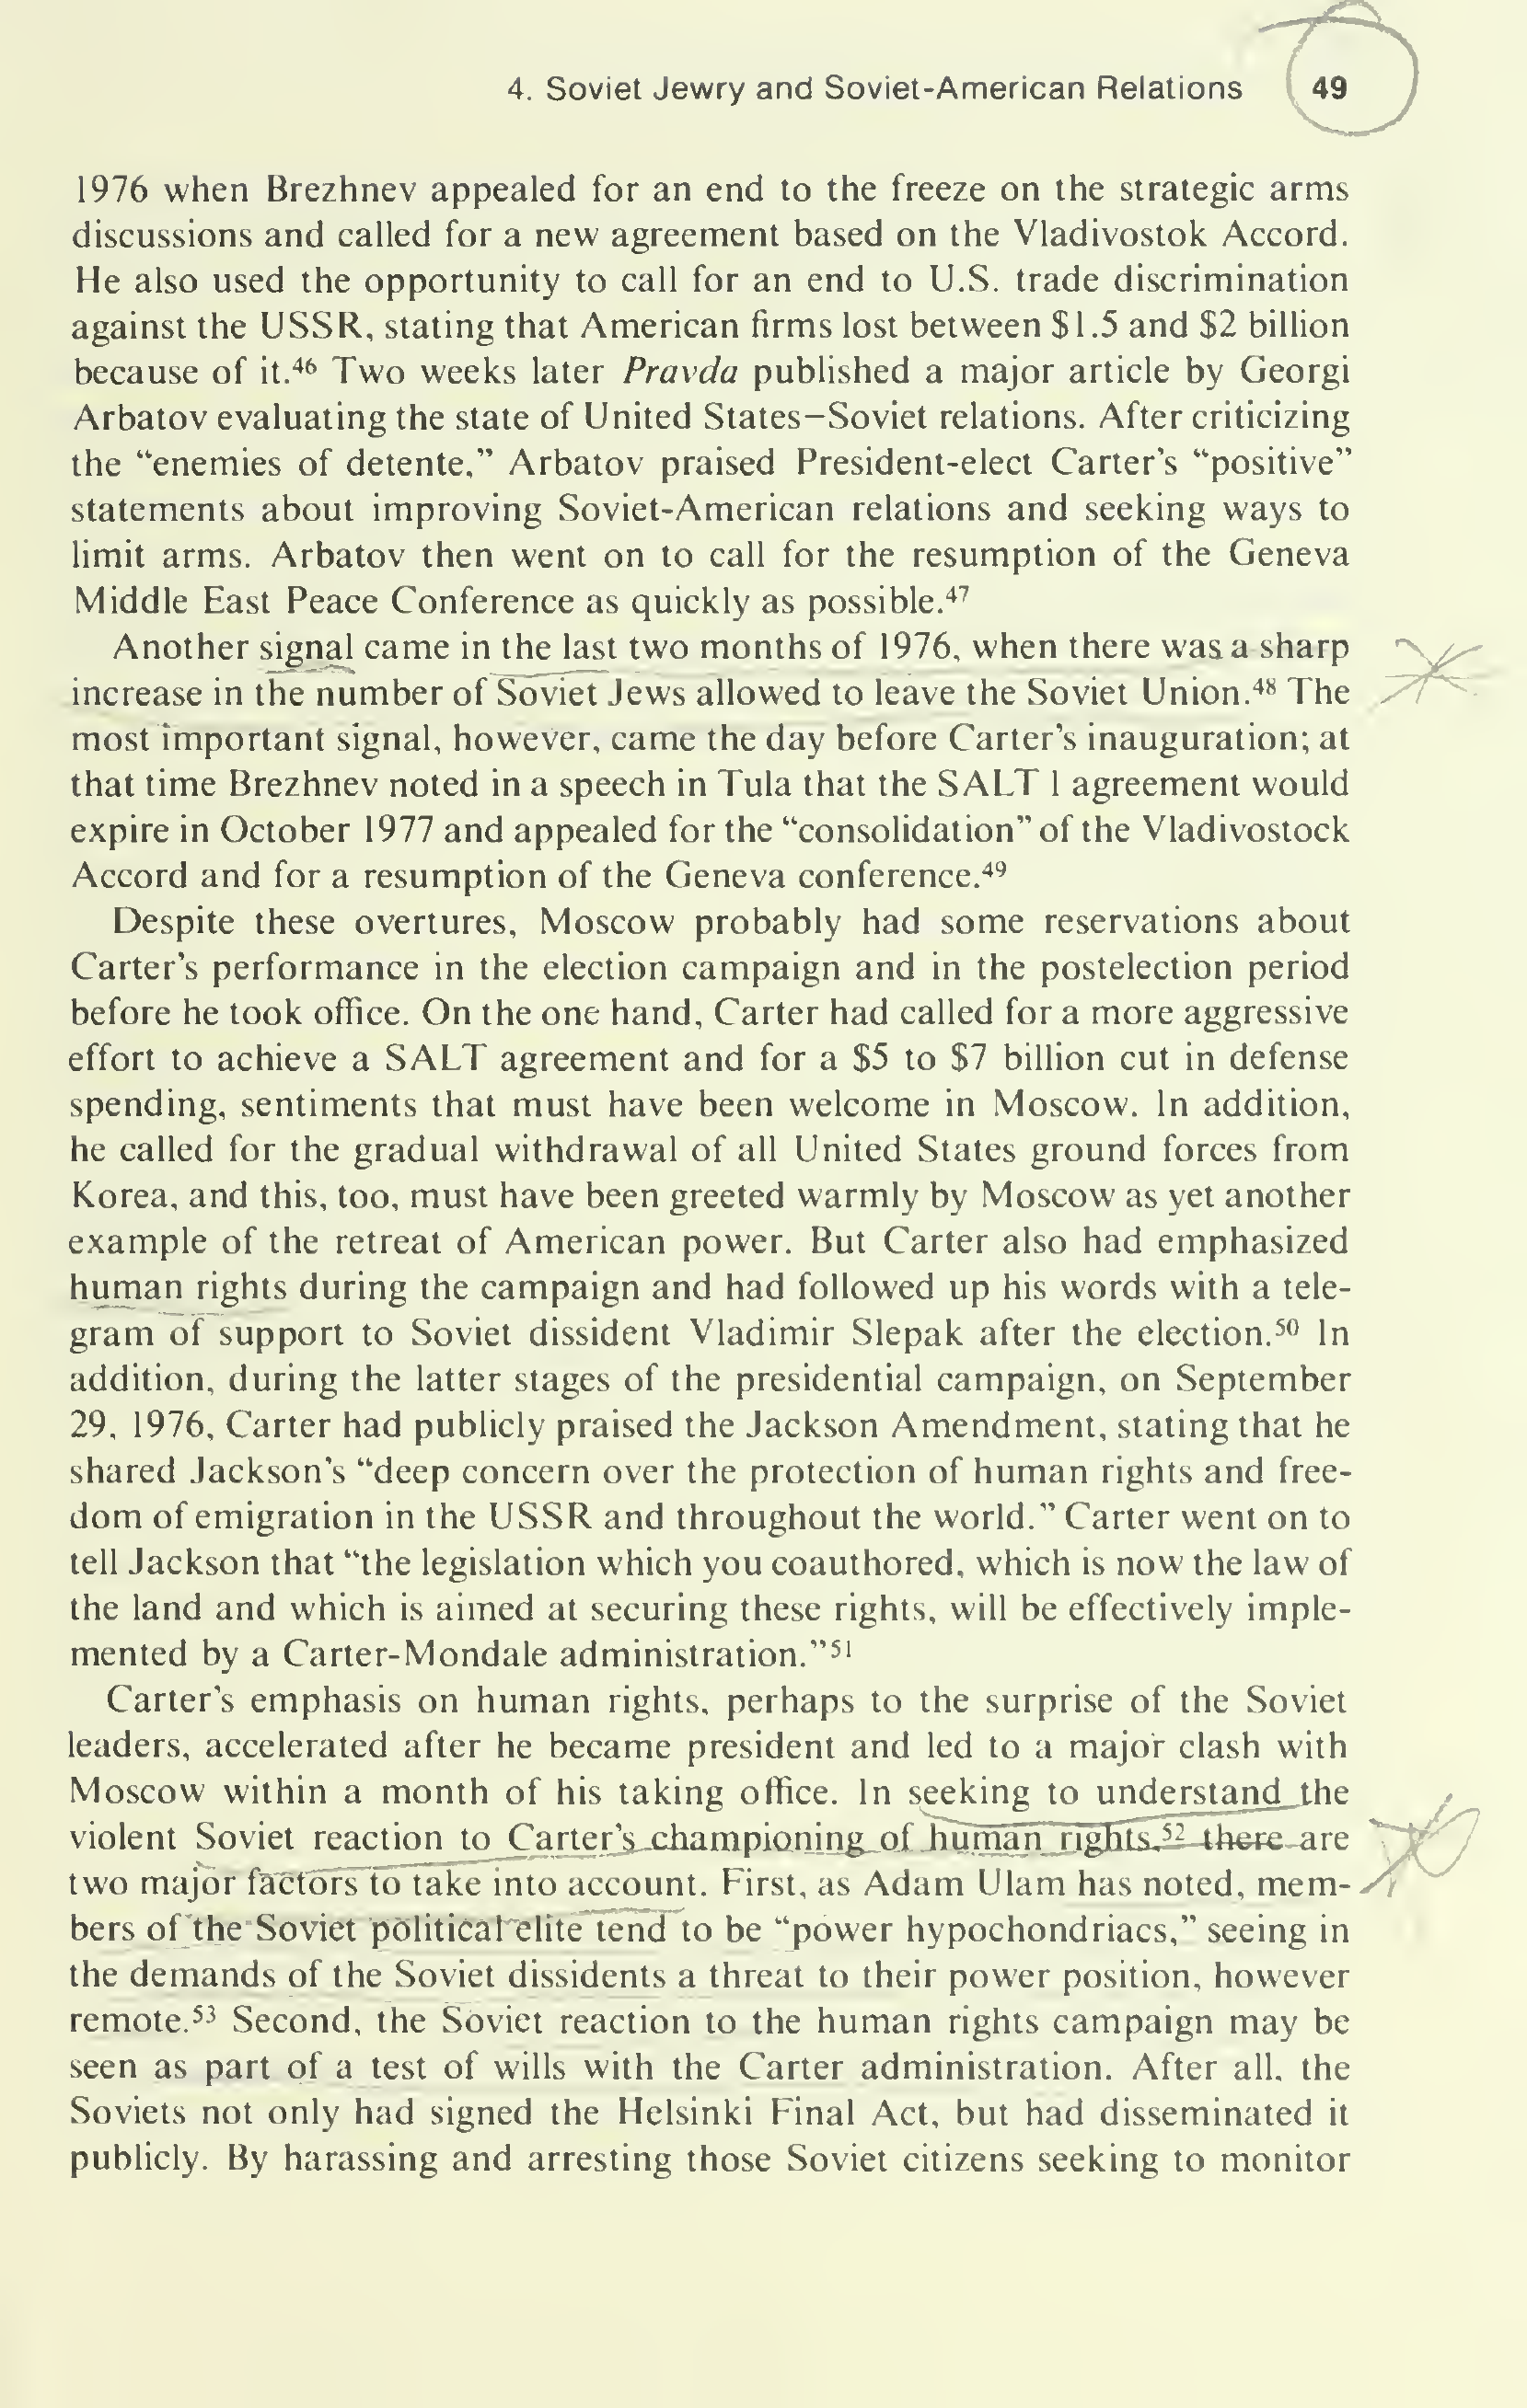 4. Soviet Jewry and Soviet-American Relations 49
1976 when Brezhnev appealed for an end to the freeze on the strategic arms
discussions and called for a new agreement based on the Vladivostok Accord.
He also used the opportunity to call for an end to U.S. trade discrimination
against the USSR, stating that American firms lost between $1.5 and $2 billion
because of it.⁴⁶ Two weeks later Pravda published a major article by Georgi
Arbatov evaluating the state of United States–Soviet relations. After criticizing
the “enemies of detente,” Arbatov praised President-elect Carter’s “positive”
statements about improving Soviet-American relations and seeking ways to
limit arms. Arbatov then went on to call for the resumption of the Geneva
Middle East Peace Conference as quickly as possible.⁴⁷
Another signal came in the last two months of 1976, when there was a sharp
increase in the number of Soviet Jews allowed to leave the Soviet Union.⁴⁸ The
most important signal, however, came the day before Carter’s inauguration; at
that time Brezhnev noted in a speech in Tula that the SALT I agreement would
expire in October 1977 and appealed for the “consolidation” of the Vladivostock
Accord and for a resumption of the Geneva conference.⁴⁹
Despite these overtures, Moscow probably had some reservations about
Carter’s performance in the election campaign and in the postelection period
before he took office. On the one hand, Carter had called for a more aggressive
effort to achieve a SALT agreement and for a $5 to $7 billion cut in defense
spending, sentiments that must have been welcome in Moscow. In addition,
he called for the gradual withdrawal of all United States ground forces from
Korea, and this, too, must have been greeted warmly by Moscow as yet another
example of the retreat of American power. But Carter also had emphasized
human rights during the campaign and had followed up his words with a tele-
gram of support to Soviet dissident Vladimir Slepak after the election.⁵⁰ In
addition, during the latter stages of the presidential campaign, on September
29, 1976, Carter had publicly praised the Jackson Amendment, stating that he
shared Jackson’s “deep concern over the protection of human rights and free-
dom of emigration in the USSR and throughout the world.” Carter went on to
tell Jackson that “the legislation which you coauthored, which is now the law of
the land and which is aimed at securing these rights, will be effectively imple-
mented by a Carter-Mondale administration.”⁵¹
Carter’s emphasis on human rights, perhaps to the surprise of the Soviet
leaders, accelerated after he became president and led to a major clash with
Moscow within a month of his taking office. In seeking to understand the
violent Soviet reaction to Carter’s championing of human rights,⁵² there are
two major factors to take into account. First, as Adam Ulam has noted, mem-
bers of the Soviet political elite tend to be “power hypochondriacs,” seeing in
the demands of the Soviet dissidents a threat to their power position, however
remote.⁵³ Second, the Soviet reaction to the human rights campaign may be
seen as part of a test of wills with the Carter administration. After all, the
Soviets not only had signed the Helsinki Final Act, but had disseminated it
publicly. By harassing and arresting those Soviet citizens seeking to monitor